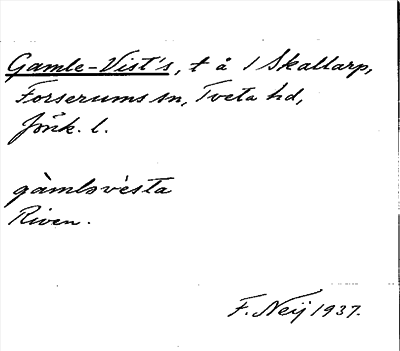 Gamle-Vist's, t å 1 Skallarp,
Forserums sn, Tveta hd,
Jönk. l.
gàmləvèsta
Riven.
F. Neij 1937.